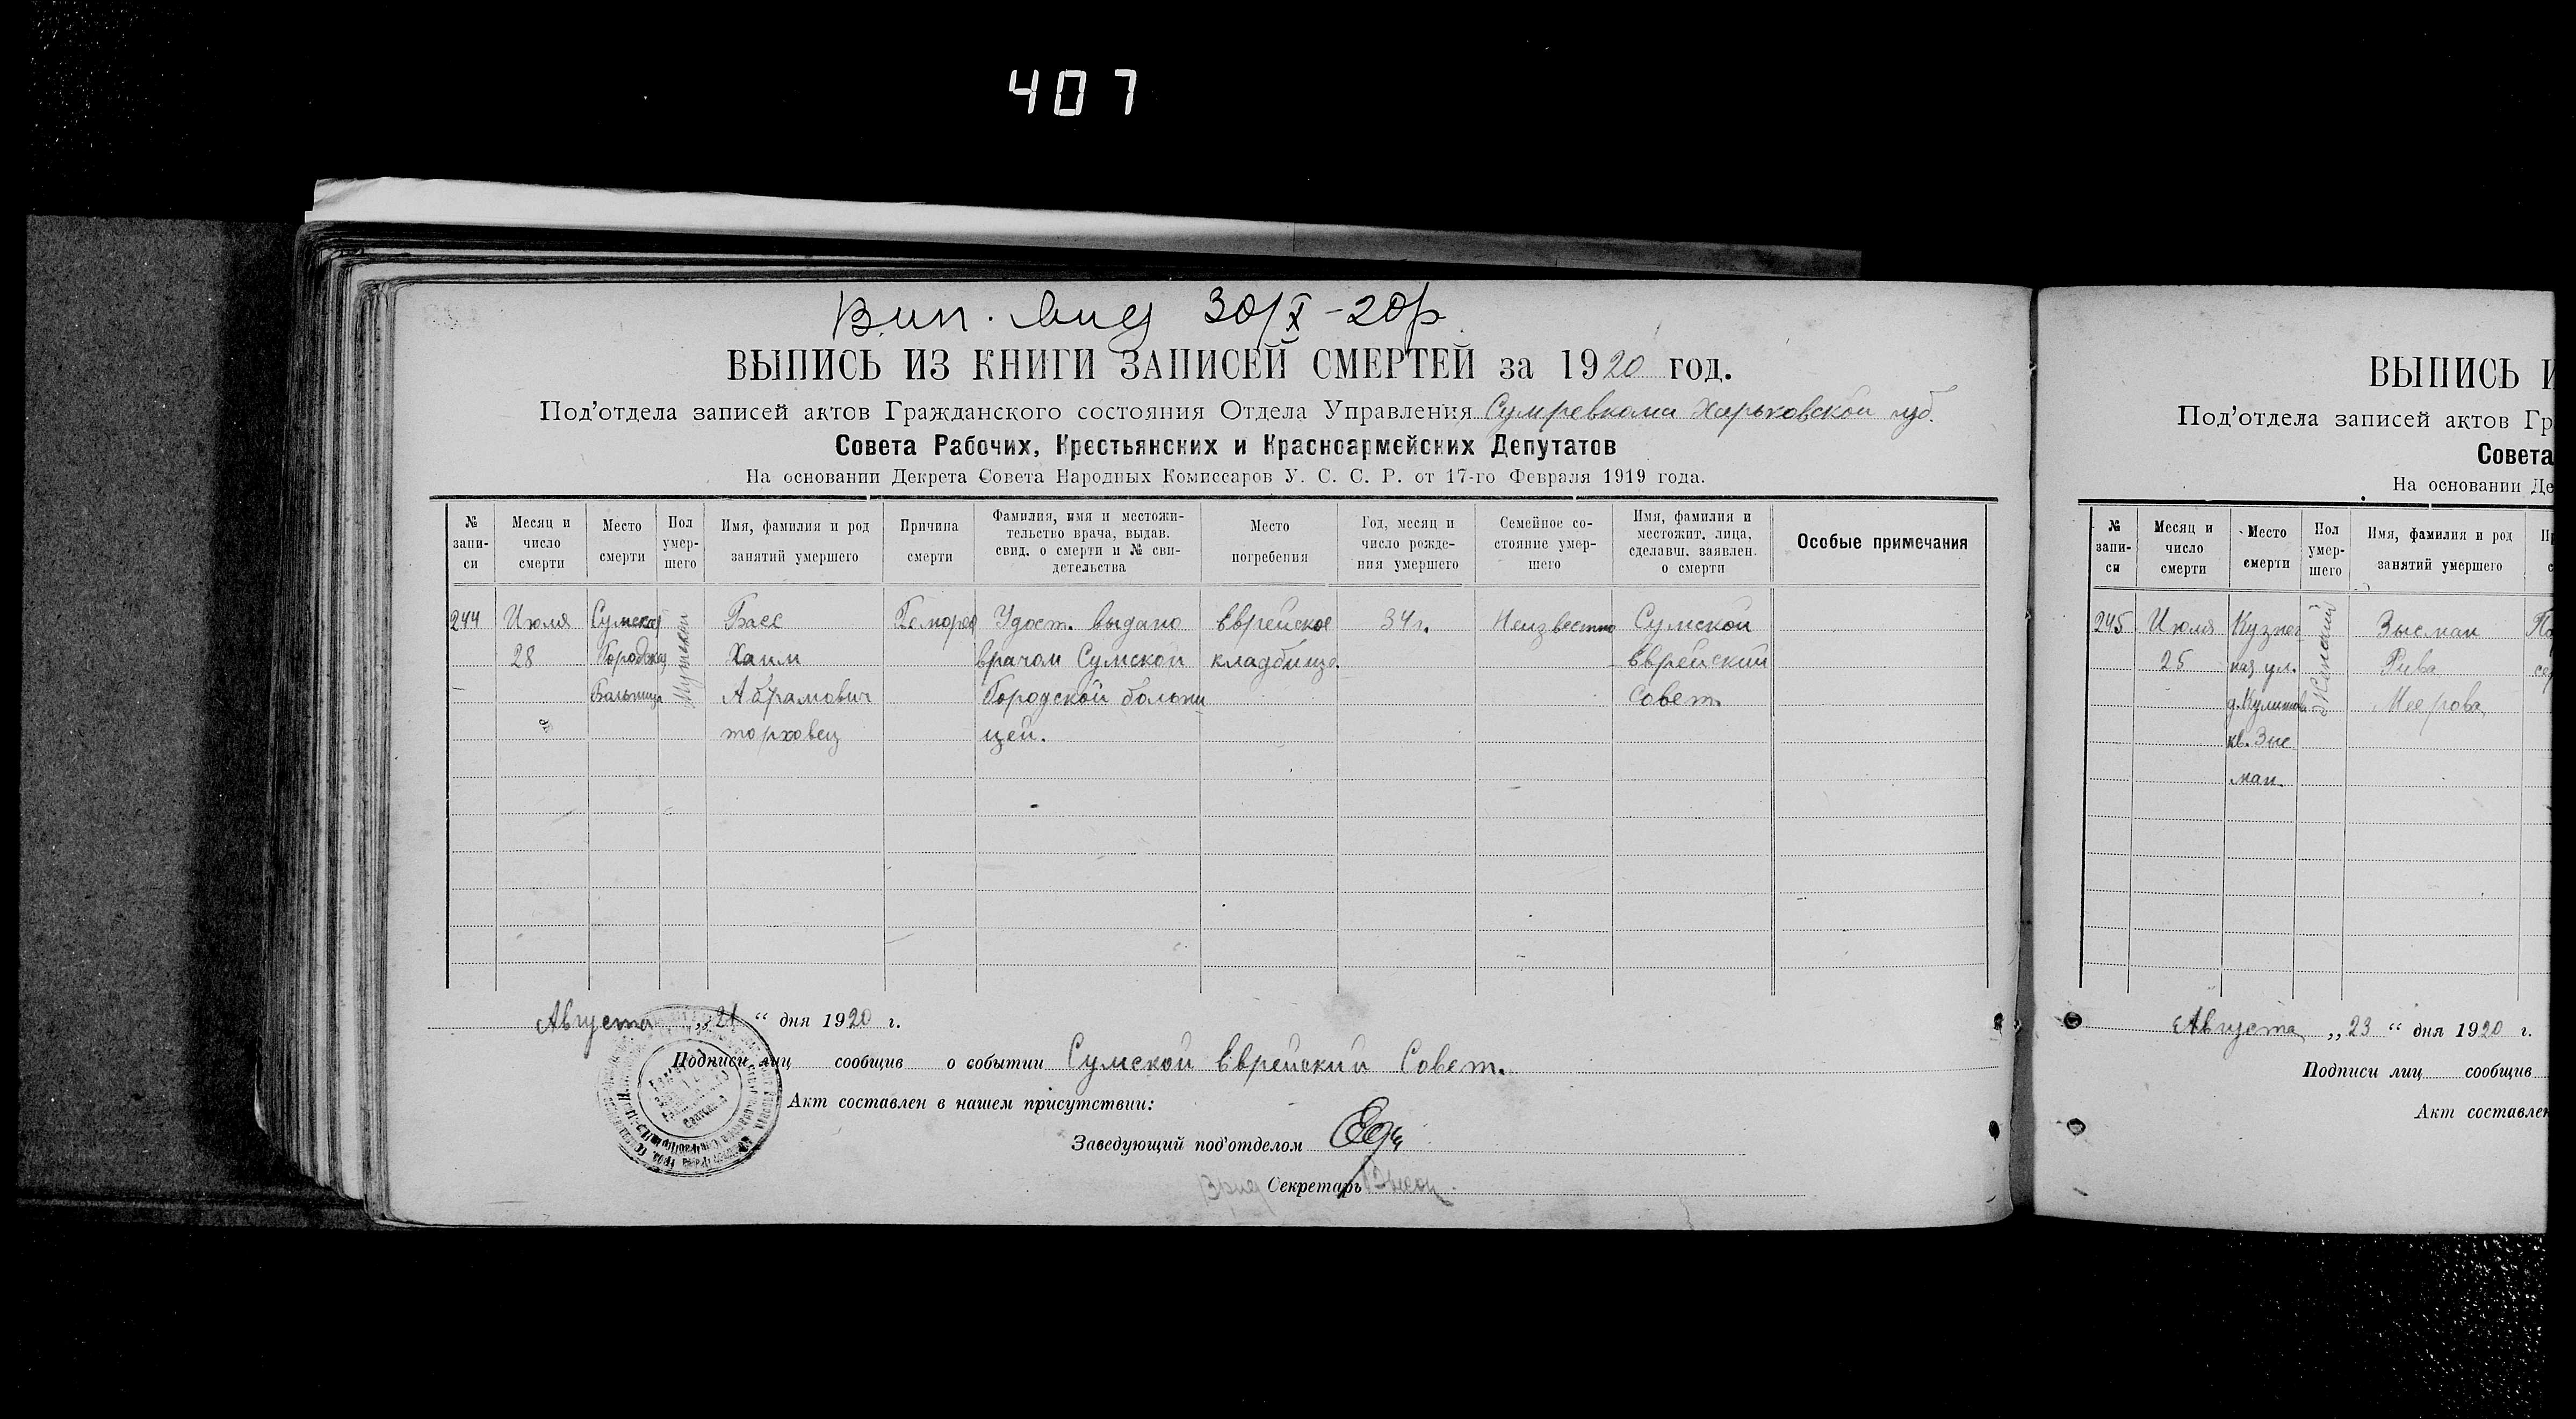 407
Вип. вид 30/X-20р.
ВЫПИСЬ ИЗ КНИГИ ЗАПИСЕЙ СМЕРТЕЙ за 1920 год.
Под'отдела записей актов Гражданского состояния Отдела Управления Сумревкома Харьковской губ.
Совета Рабочих, Крестьянских и Красноармейских Депутатов
На основании Декрета Совета Народных Комиссаров У. С. С. Р. от 17-го Февраля 1919 года.
№ запи-си
Месяц и число смерти
Место смерти
Пол умер-шего
Имя, фамилия и род занятий умершего
Причина смерти
Фамилия, имя и местожи-тельство врача, выдав. свид. о смерти и № сви-детельства
Место погребения
Год, месяц и число рожде-ния умершего
Семейное со-стояние умер-шего
Имя, фамилия и местожит. лица, сделавш. заявлен. о смерти
Особые примечания
244 Июля Сумская Мужской Басс Удост. выдано Еврейское 34 г. Неизвестно Сумской
28 Городская Хаим врачом Сумской кладбище Еврейский
Больница Абрамович Городской больни Совет.
торховец цей.
Августа „21“ дня 1920 г.
Подписи лиц сообщив о событии Сумской Еврейский Совет.
Акт составлен в нашем присутствии:
Заведующий под'отделом
Секретарь
ВЫПИСЬ И
Под'отдела записей актов Гр
Совета
На основании Де
№ запи-си
Месяц и число смерти
Место смерти
Пол умер-шего
Имя, фамилия и род занятий умершего
245 Июля Кузнеч Женский Зысман
25 ная ул. Рива
Меерова
кв. Зыс
ман
Августа „23“ дня 1920 г.
Подписи лиц сообщив
Акт составлен